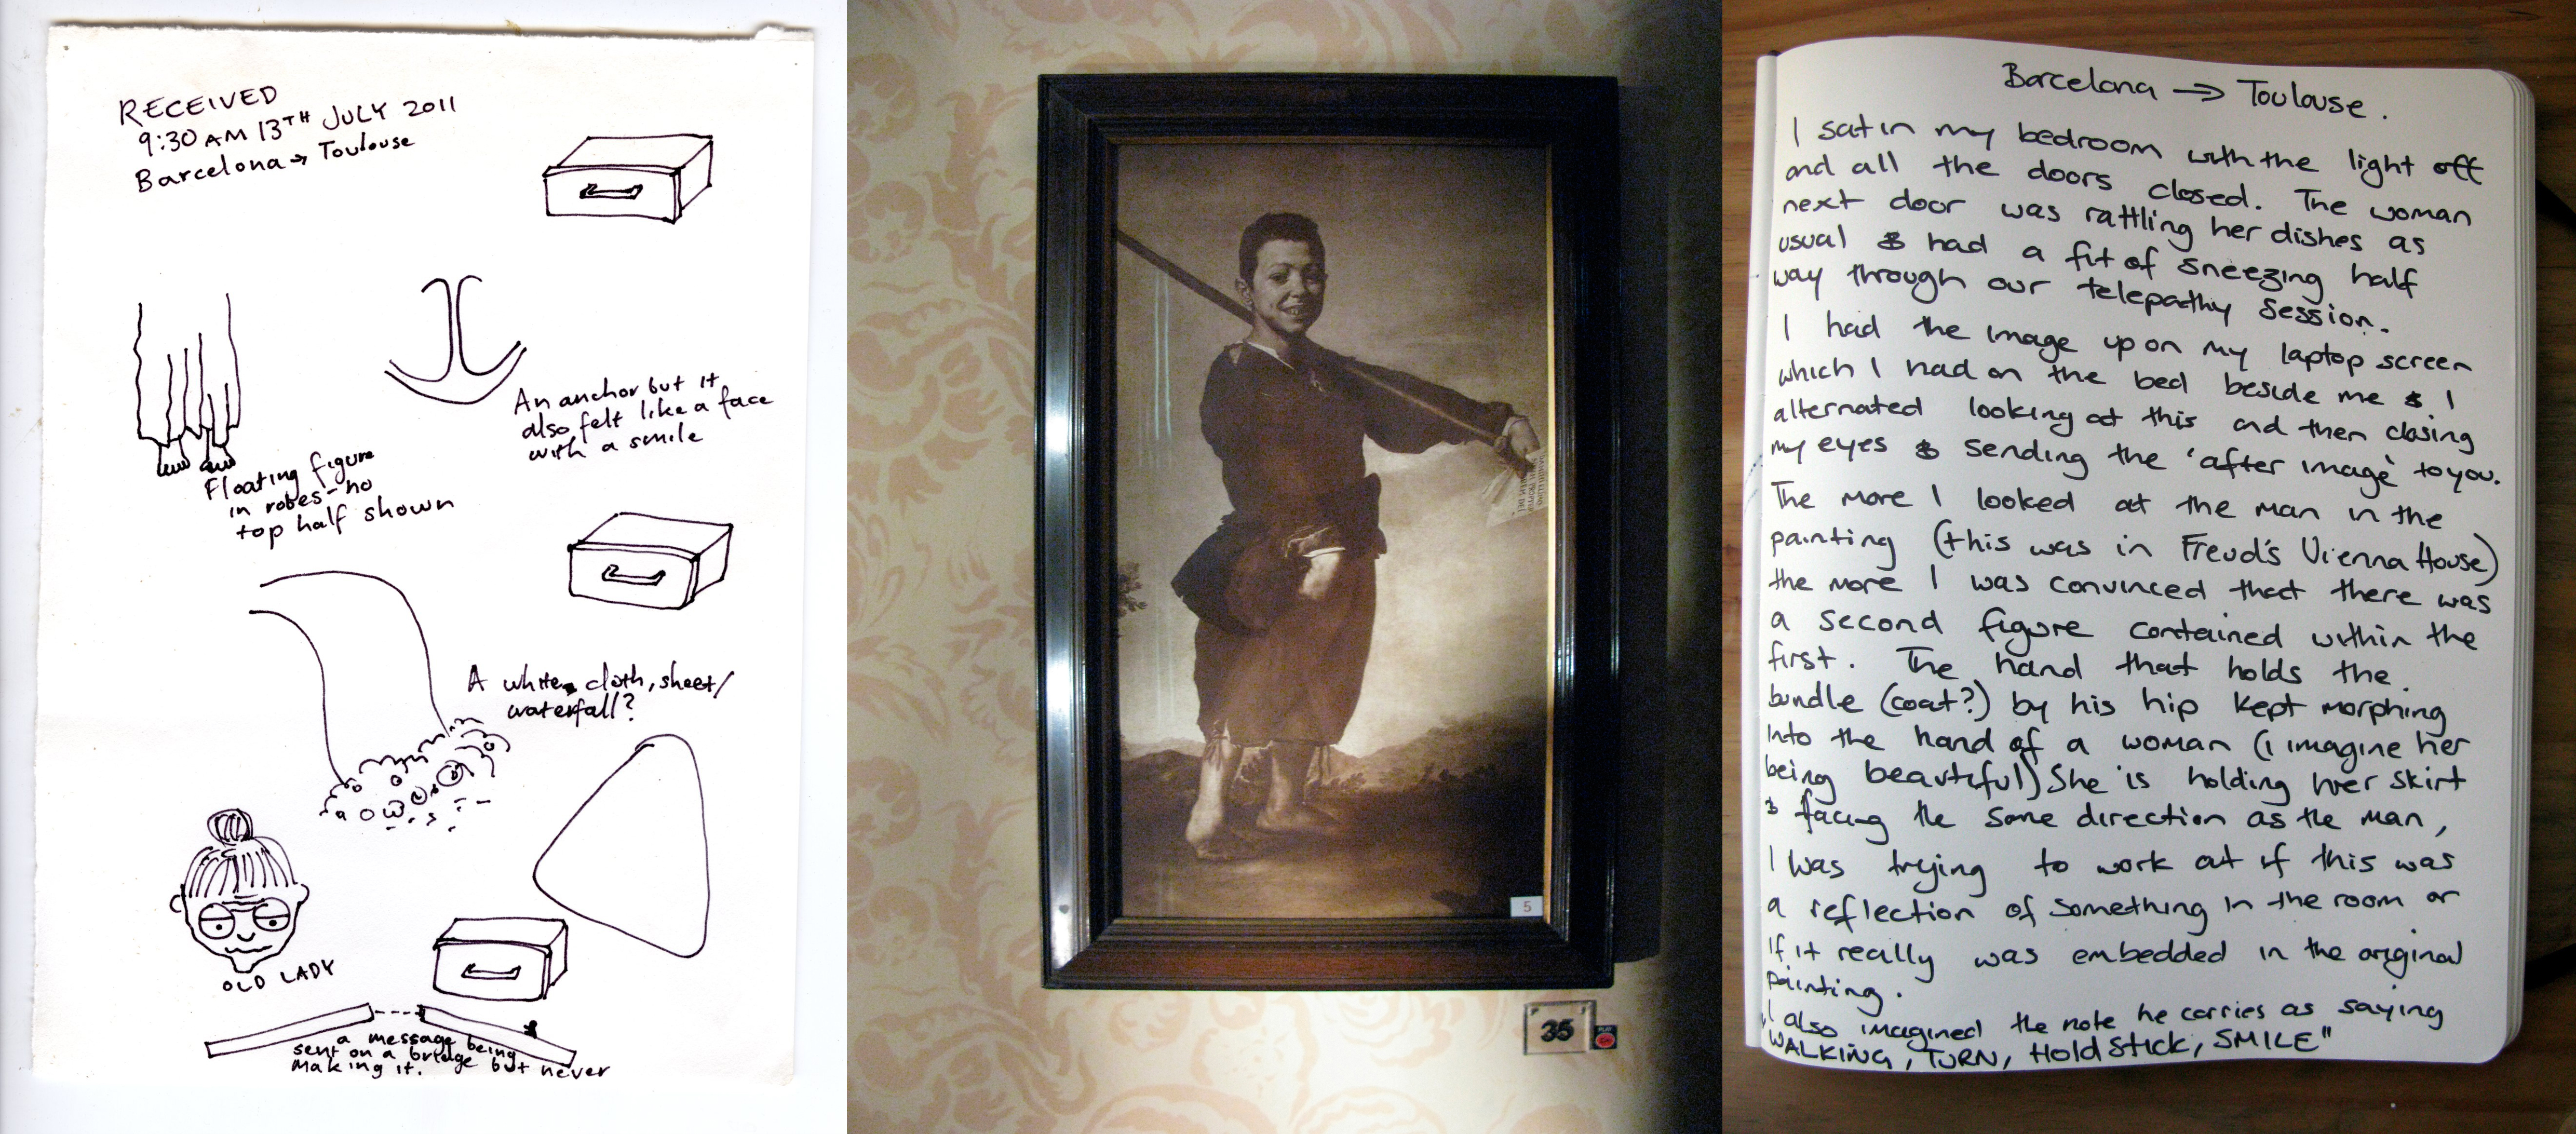 RECEIVED
9:30 AM 13TH JULY 2011
Barcelona → Toulouse
An anchor but it
also felt like a face
with a smile
Floating figure
in robes - no
top half shown
A white cloth, sheet/
waterfall?
OLD LADY
a message being
sent on a bridge but never
making it.
5
35
Barcelona → Toulouse.
I sat in my bedroom with the light off
and all the doors closed. The woman
next door was rattling her dishes as
usual & had a fit of sneezing half
way through our telepathy session.
I had the image up on my laptop screen
which I had on the bed beside me & I
alternated looking at this and then closing
my eyes & sending the 'after image' to you.
The more I looked at the man in the
painting (this was in Freud's Vienna House)
the more I was convinced that there was
a second figure contained within the
first. The hand that holds the
bundle (coat?) by his hip kept morphing
into the hand of a woman (i imagine her
being beautiful) She is holding her skirt
& facing the same direction as the man,
I was trying to work out if this was
a reflection of something in the room or
if it really was embedded in the original
painting.
I also imagined the note he carries as saying
"WALKING, TURN, HOLD STICK, SMILE"